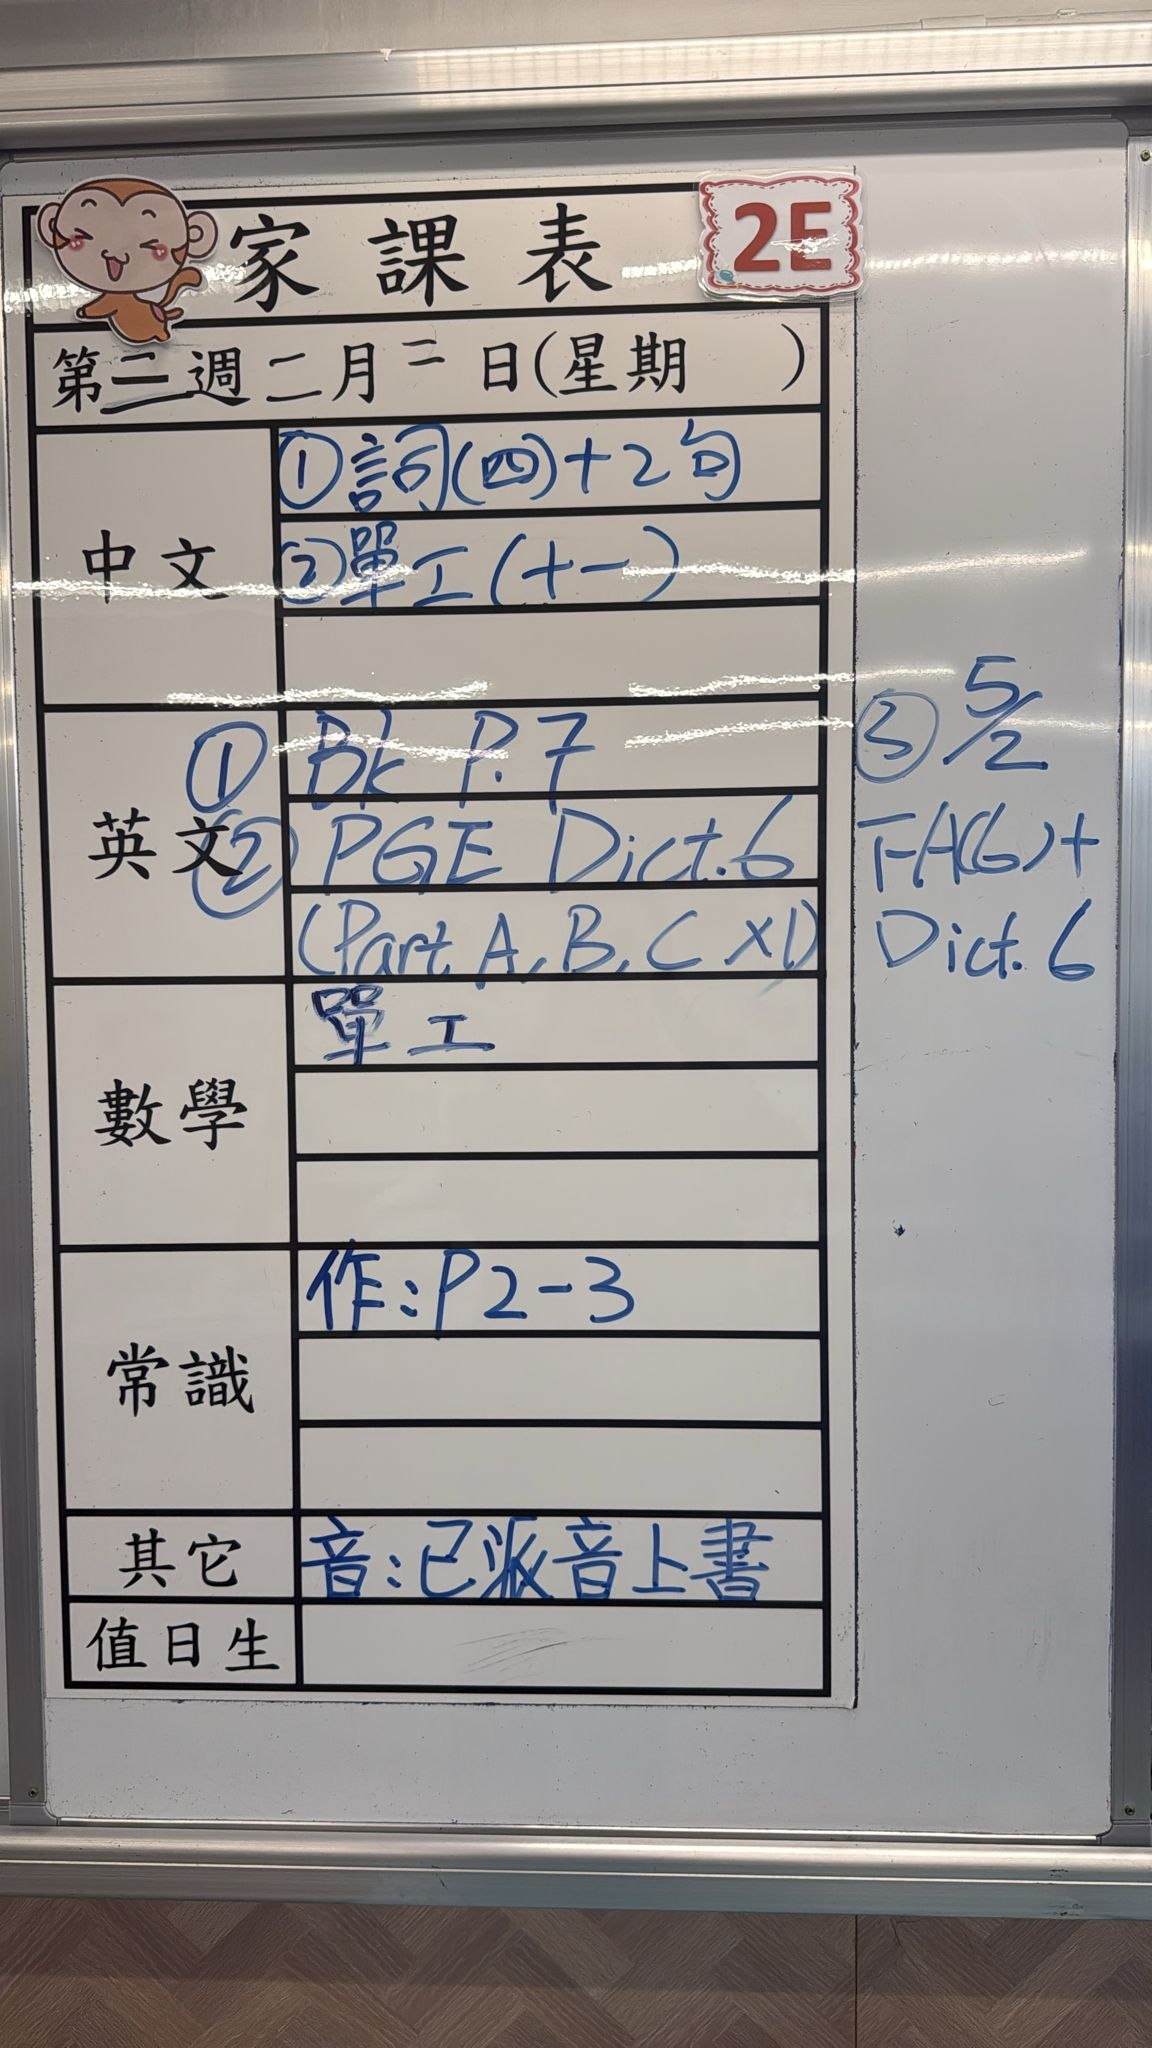 家課表 2E
第三週二月二日(星期 )
中文
①詞(四)+2句
②單工(十一)
英文
① Bk P.7
② PGE Dict.6
(Part A, B, C X1)
③ 5/2
FA(6)+
Dict. 6
數學
單工
常識
作:P2-3
其它
音:已派音上書
值日生